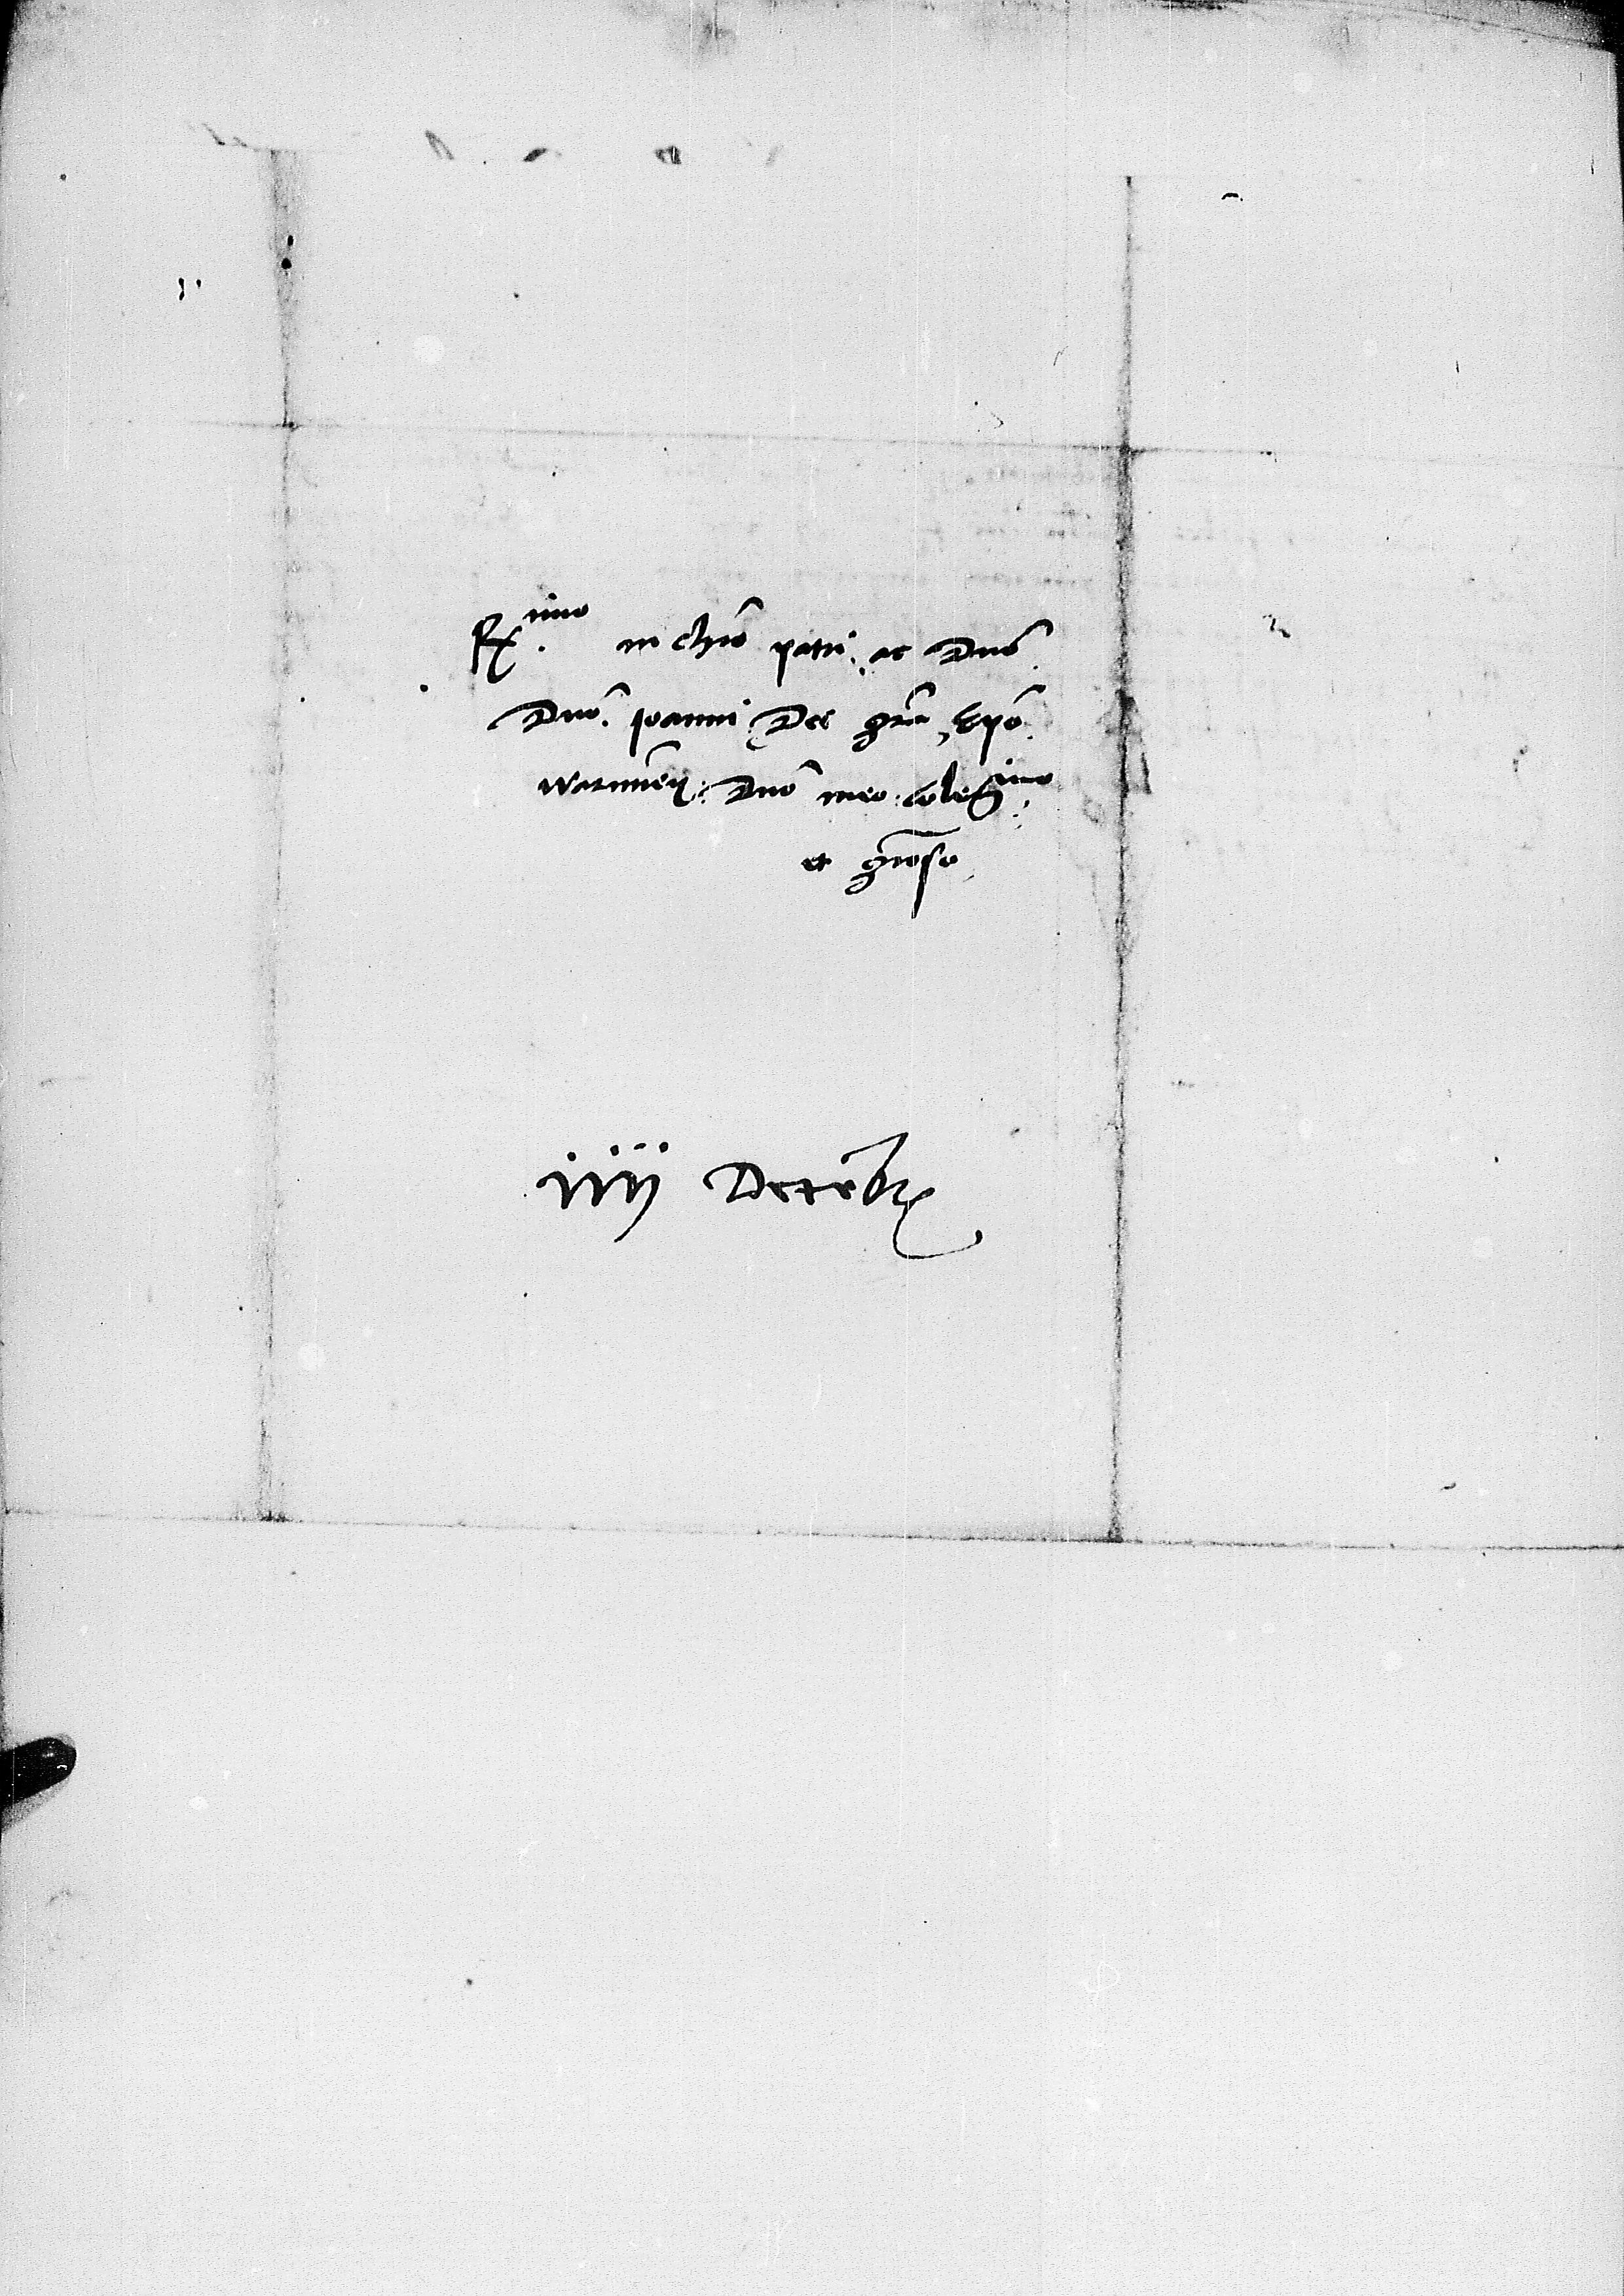 R.imo in chr̄o patri ac Dn̄o
Dn̄o. Joanni Dei gr̄a Ep̄o
warmień: Dn̄o meo colen̄imo
et gr̄oso
iiij Decēbr